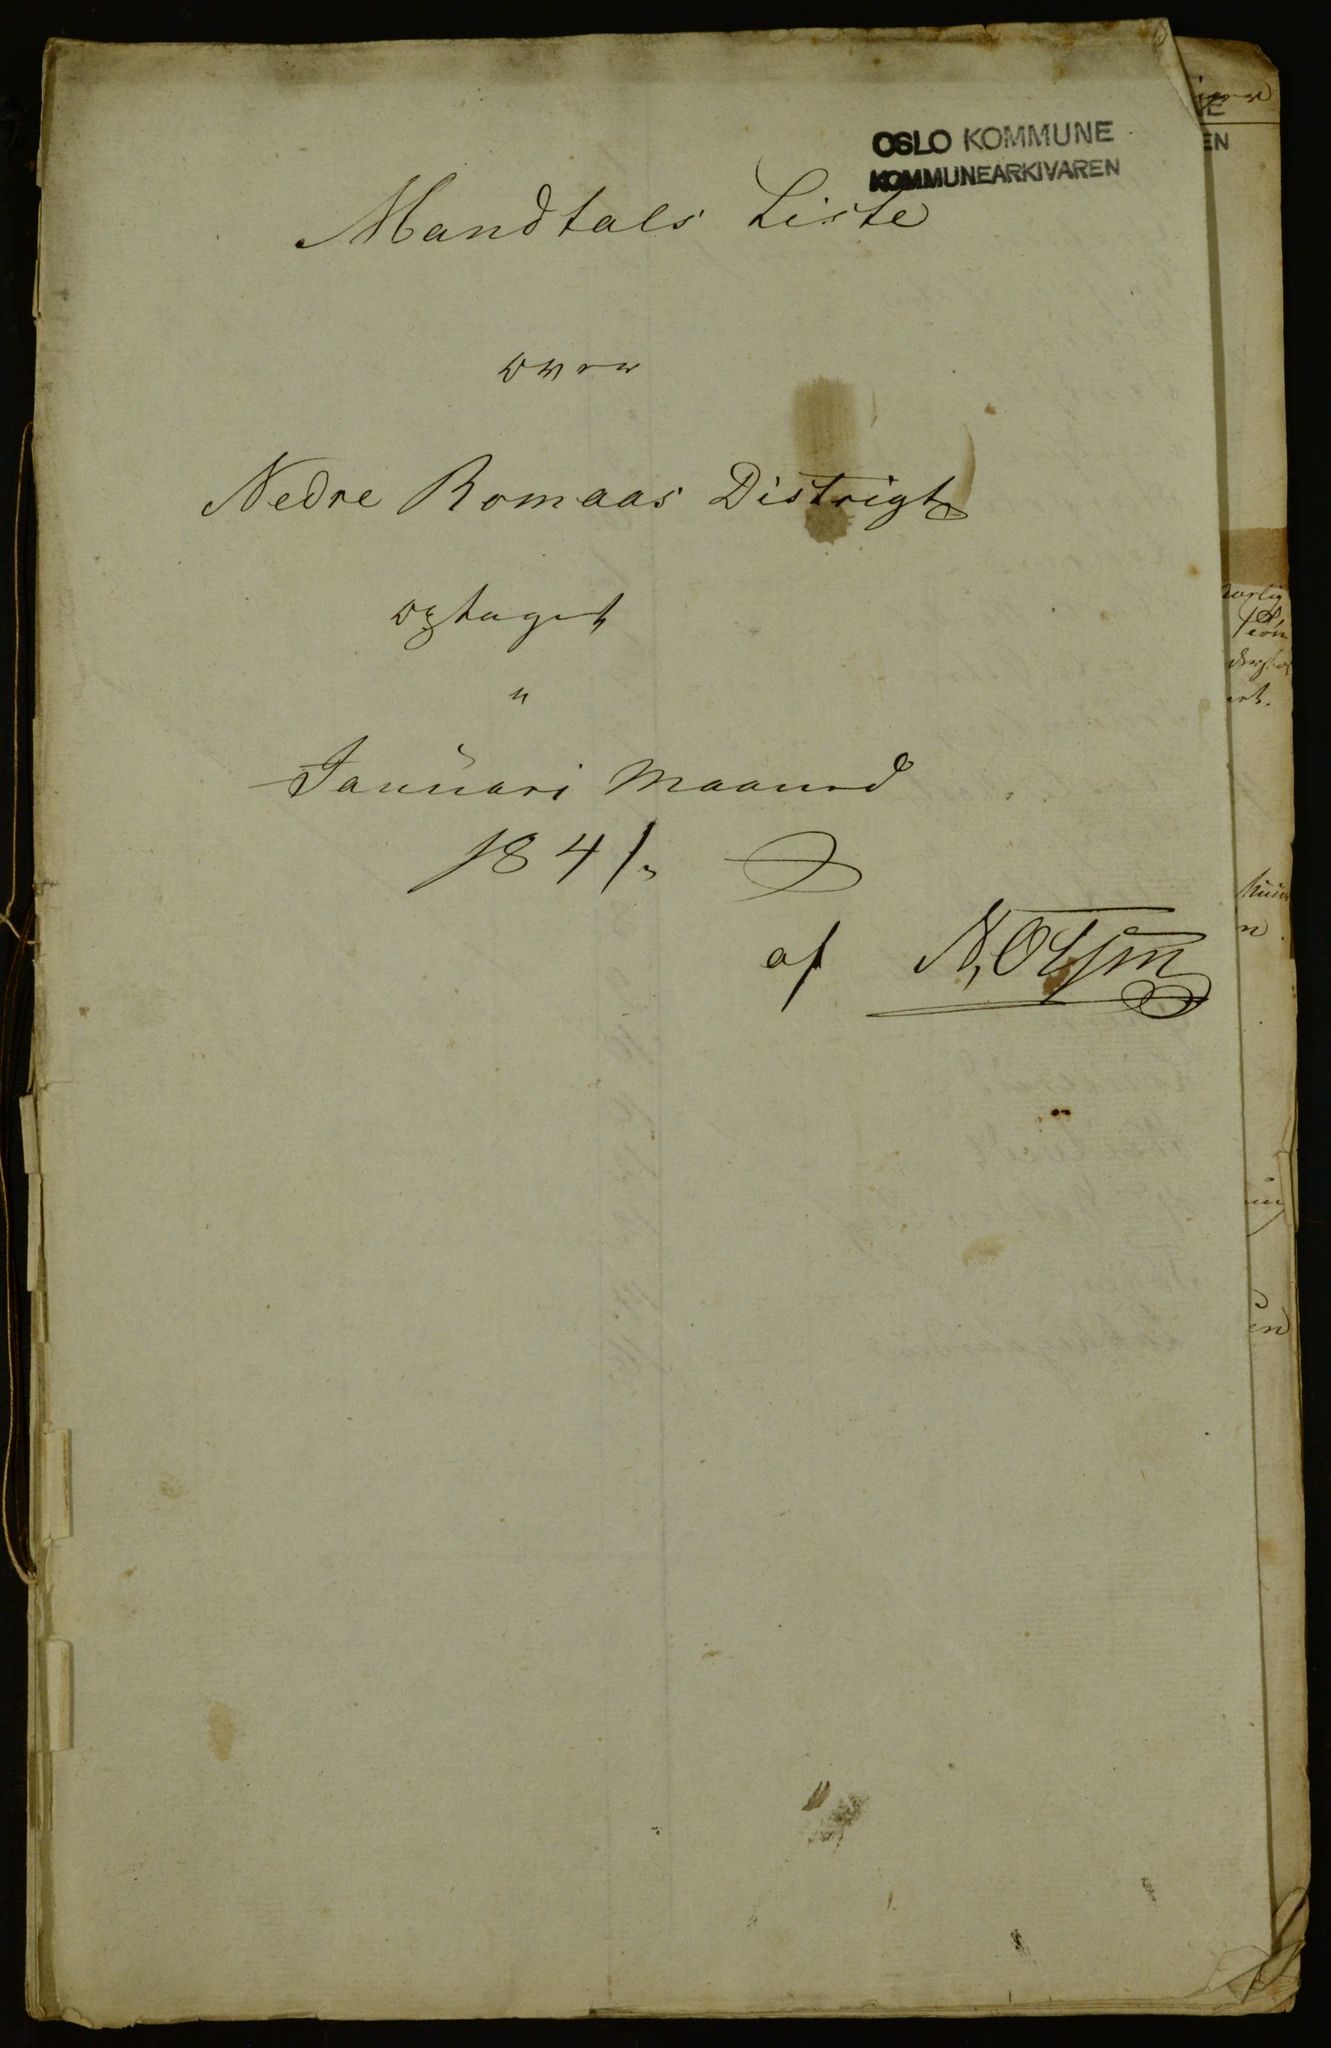 OSLO KOMMUNE
KOMMUNEARKIVAREN
Mandtals Liste
over
Nedre Romaas Distrigt
optaget
"
Januari Maaned
1841.
af N,